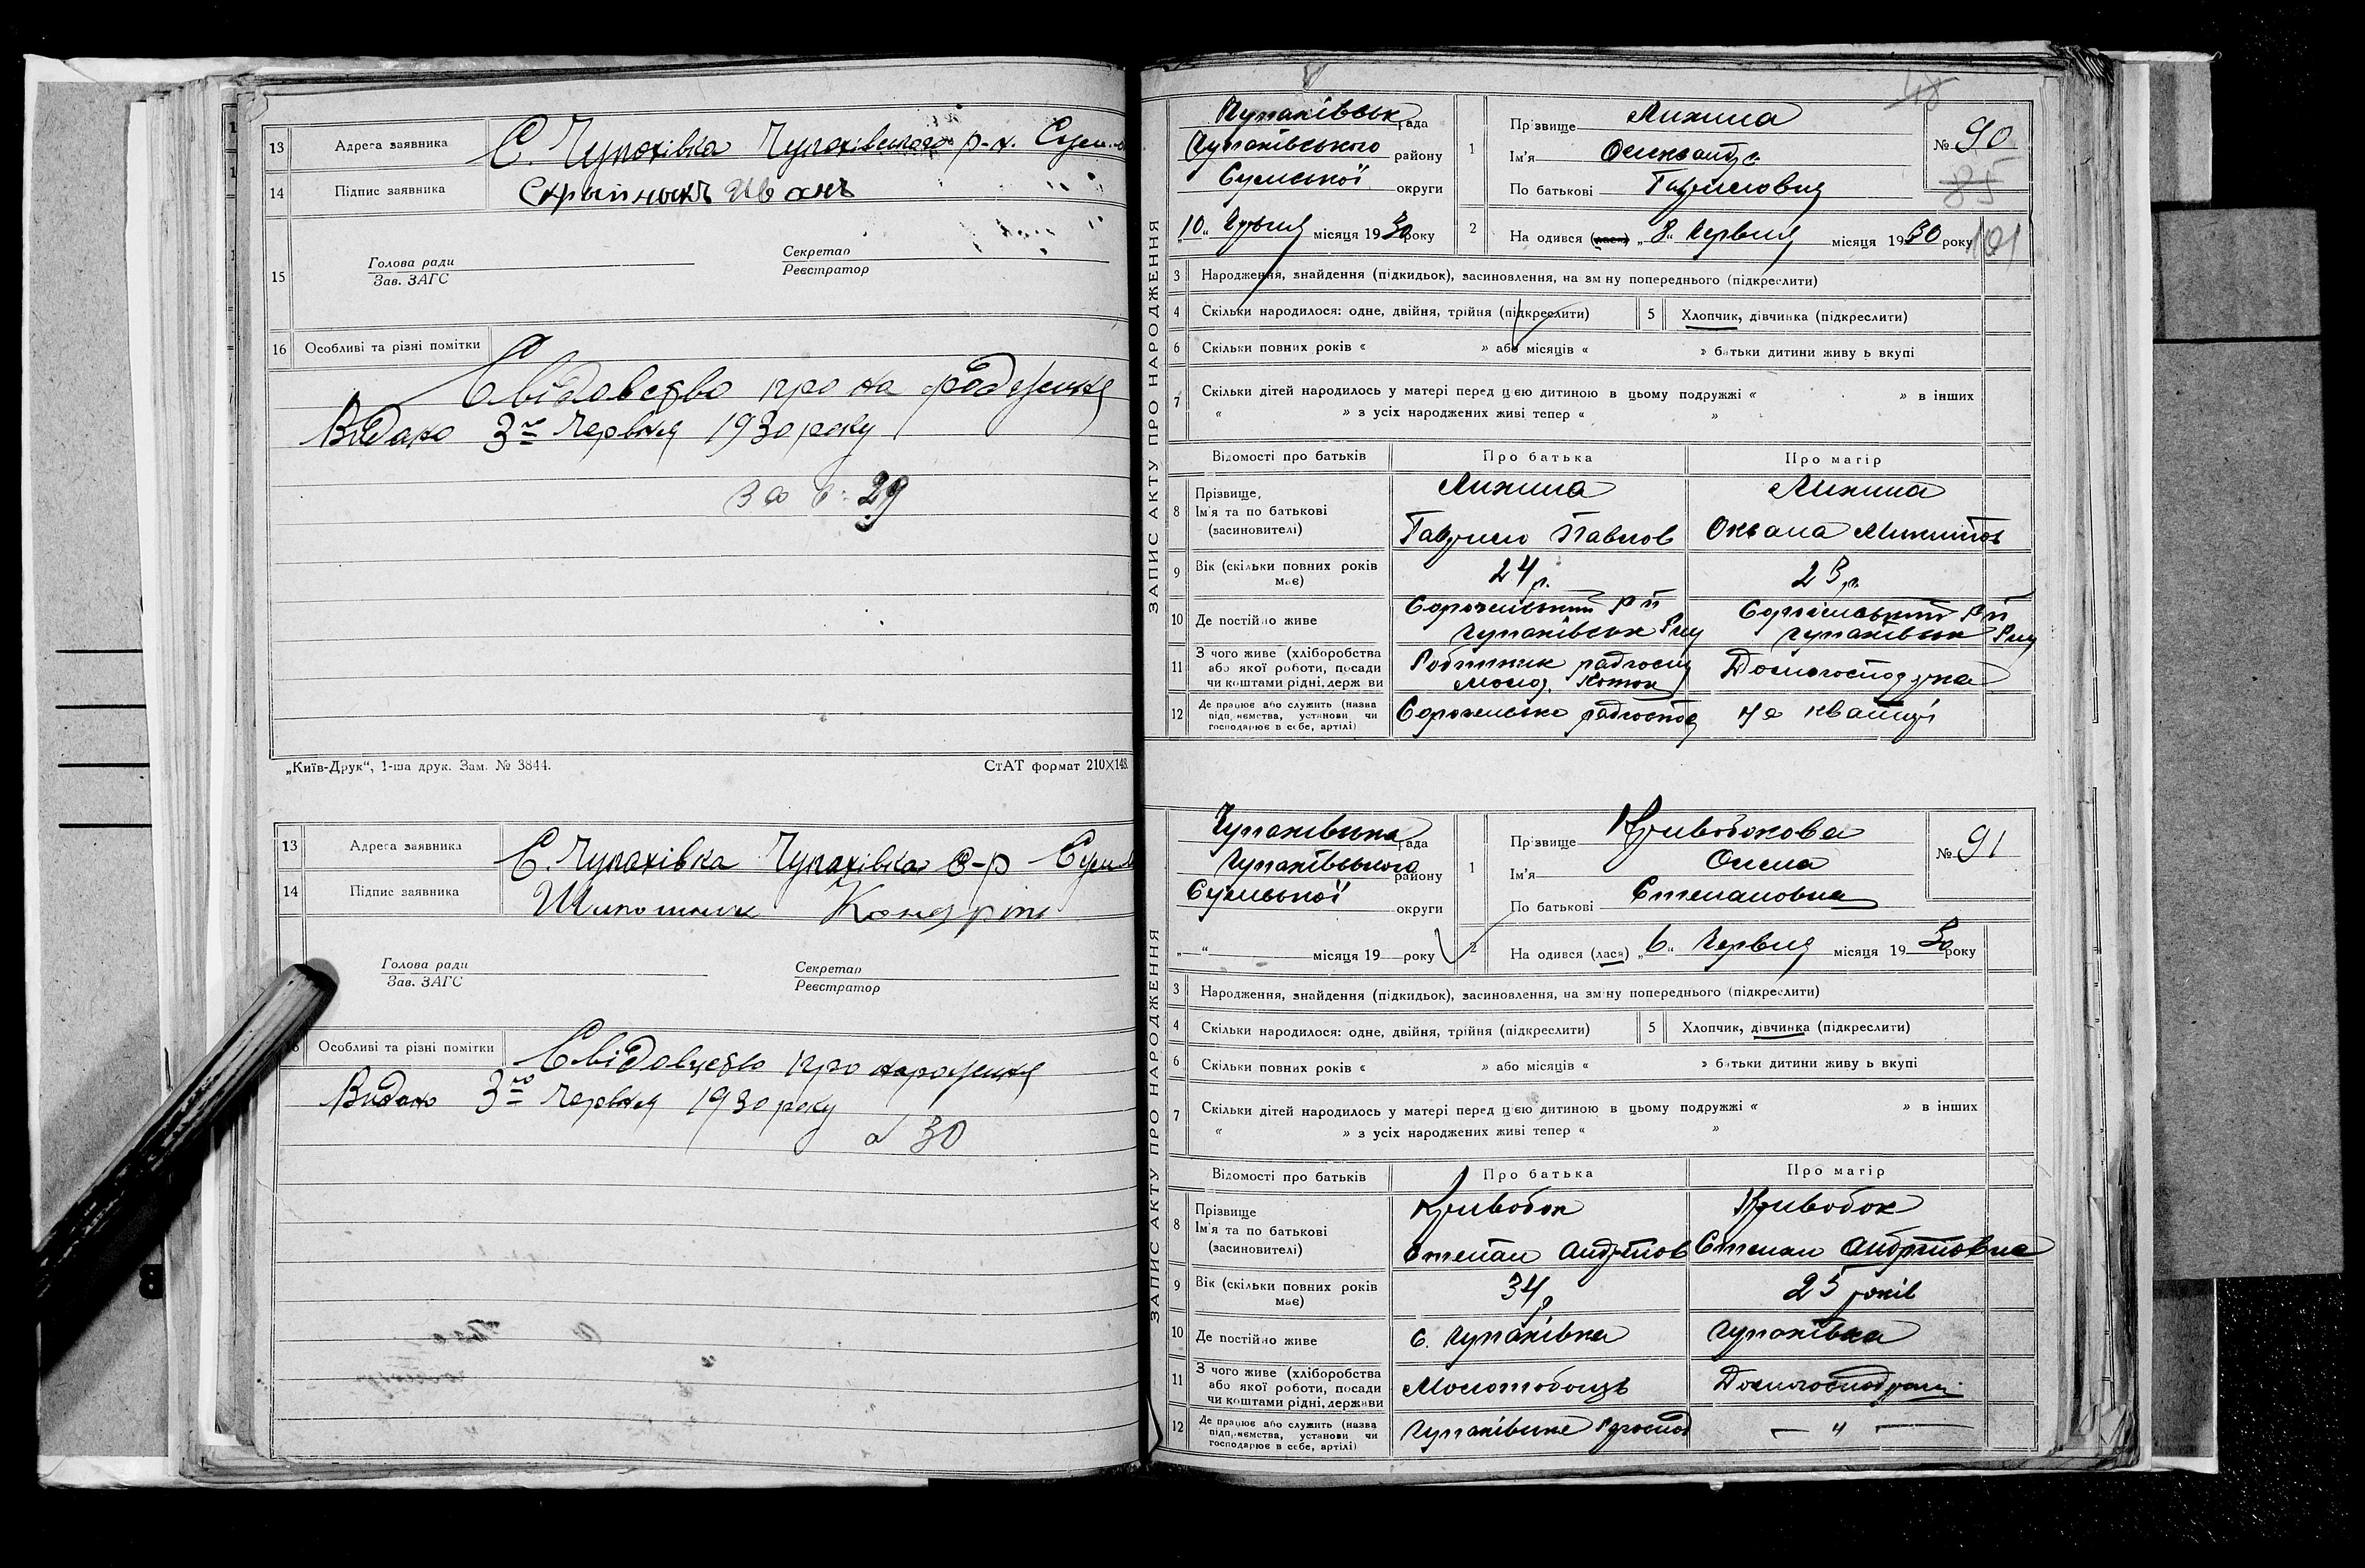 13 Адреса заявника С. Чупахівка Чупахівського р-н. Сумськ
14 Підпис заявника Скрыпныкъ Иванъ
15 Голова ради Зав. ЗАГС Секретар Реєстратор
16 Особливі та різні помітки
Свідовство про на родження
Видано 3го Червня 1930 року
за № 29
„Київ-Друк“, 1-ша друк. Зам. № 3844. СтАТ формат 210X148.
13 Адреса заявника С. Чупахівка Чупахівка Сумськ
14 Підпис заявника Кондрат
Голова ради Зав. ЗАГС Секретар Реєстратор
16 Особливі та різні помітки Свідовцтво про народження
Видано 3го Червня 1930 року
30
48
ЗАПИС АКТУ ПРО НАРОДЖЕННЯ
Чупахівськ рада
Чупахівського району
Сумської округи
„10“ Червня місяця 1930 року
1 Прізвище
Ім'я Олександр
По батькові Гаврилович
№ 90
85
101
2 На одився (лася) „8“ Червня місяця 1930 року
3 Народження, знайдення (підкидьок), засиновлення, на зміну попереднього (підкреслити)
4 Скільки народилося: одне, двійня, трійня (підкреслити) 5 Хлопчик, дівчинка (підкреслити)
6 Скільки повних років « » або місяців « » батьки дитини живу ь вкупі
7 Скільки дітей народилось у матері перед цією дитиною в цьому подружжі « » в інших
« » з усіх народжених живі тепер « »
Відомості про батьків Про батька Про матір
8 Прізвище, Ім'я та по батькові (засиновителі)
Гаврило Павлов Оксана Микитов
9 Вік (скільки повних років має) 24 р. 23 р.
10 Де постійно живе
Чупахівськ Р-ну Чупахівськ Р-ну
11 З чого живе (хліборобства або якої роботи, посади чи коштами рідні, держави
Робітник радгоспу Домогосподарка
12 Де працює або служить (назва підприємства, установи чи господарює в себе, артілі) радгоспод
ЗАПИС АКТУ ПРО НАРОДЖЕННЯ
Чупахівська рада
Чупахівського району
Сумської округи
„ “ місяця 19 року
1 Прізвище Кривобокова
Ім'я Олена
По батькові Степановна
№ 91
2 На одився (лася) „6“ Червня місяця 1930 року
3 Народження, знайдення (підкидьок), засиновлення, на зміну попереднього (підкреслити)
4 Скільки народилося: одне, двійня, трійня (підкреслити) 5 Хлопчик, дівчинка (підкреслити)
6 Скільки повних років « » або місяців « » батьки дитини живу ь вкупі
7 Скільки дітей народилось у матері перед цією дитиною в цьому подружжі « » в інших
« » з усіх народжених живі тепер « »
Відомості про батьків Про батька Про матір
8 Прізвище Ім'я та по батькові (засиновителі) Кривобок Кривобок
Степан Андріїов Степан Андріївна
9 Вік (скільки повних років має) 34 р 25 років
10 Де постійно живе с. Чупахівка Чупахівка
11 З чого живе (хліборобства або якої роботи, посади чи коштами рідні, держави
Молотобоєць
12 Де працює або служить (назва підприємства, установи чи господарює в себе, артілі) — " —